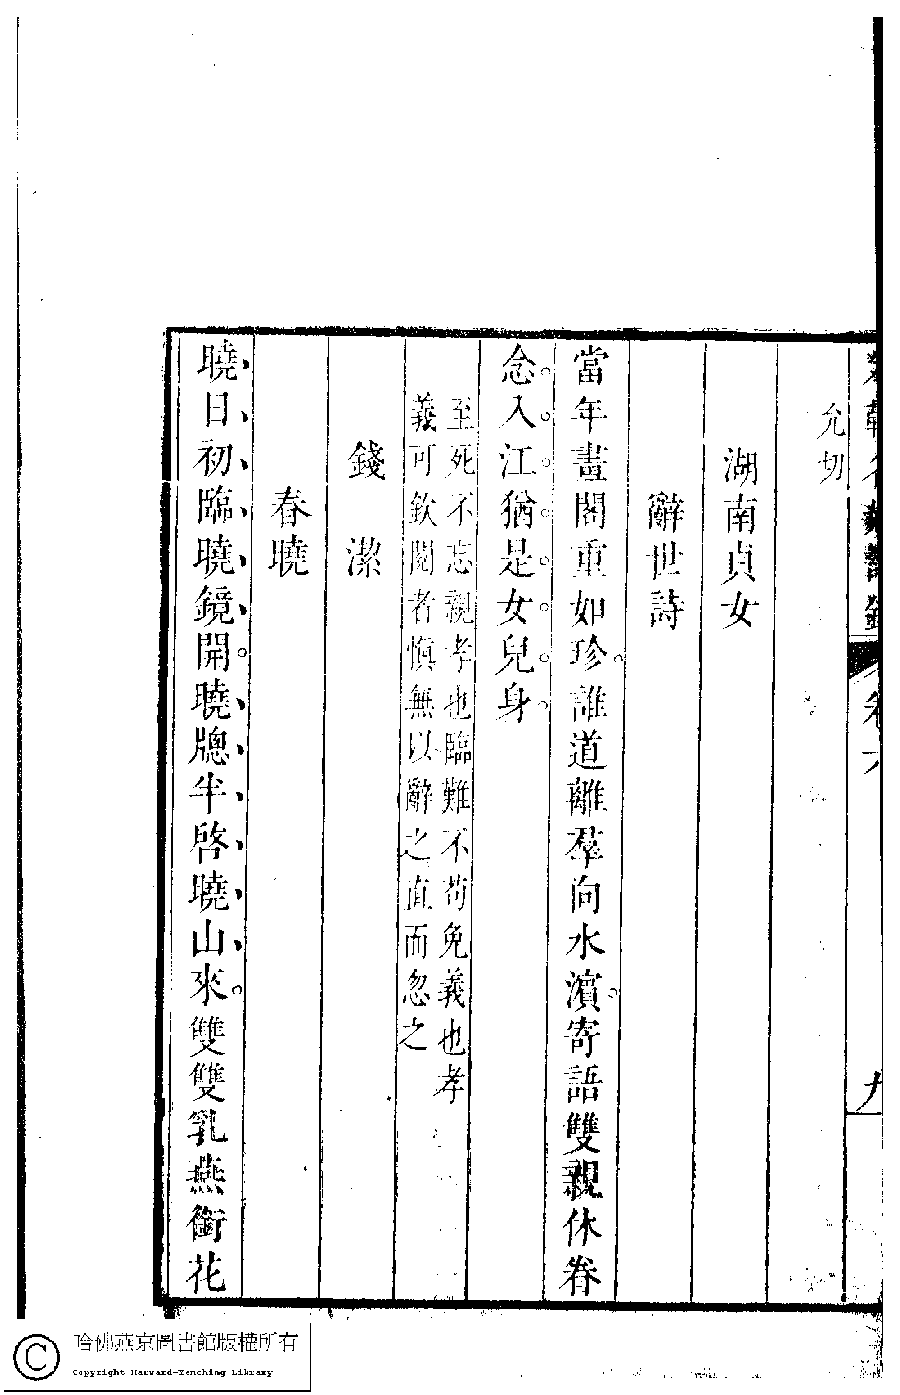 允切
湖南貞女
辭世詩
當年畫閣重如珍。誰道離羣向水濱。寄語雙親休眷
念。入。江。猶。是。女。兒。身。
至死不忘親孝也臨難不苟免義也孝
義可欽閱者愼無以辭之直而忽之
錢 潔
春曉
曉日初臨曉鏡開。曉牕半啓曉山來。雙雙乳燕銜花
哈佛燕京圖書館版權所有
Copyright Harvard-Yenching Library